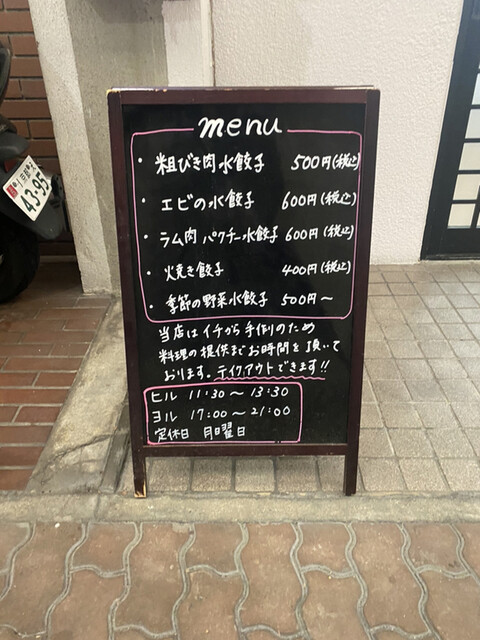 menu
・粗びき肉水餃子 500円(税込)
・エビの水餃子 600円(税込)
・ラム肉パクチー水餃子 600円(税込)
・火焼き餃子 400円(税込)
・季節の野菜水餃子 500円〜
当店はイチから手作りのため
料理の提供までお時間を頂いて
おります。テイクアウトできます!!
ヒル 11:30〜13:30
ヨル 17:00〜21:00
定休日 月曜日
43-95